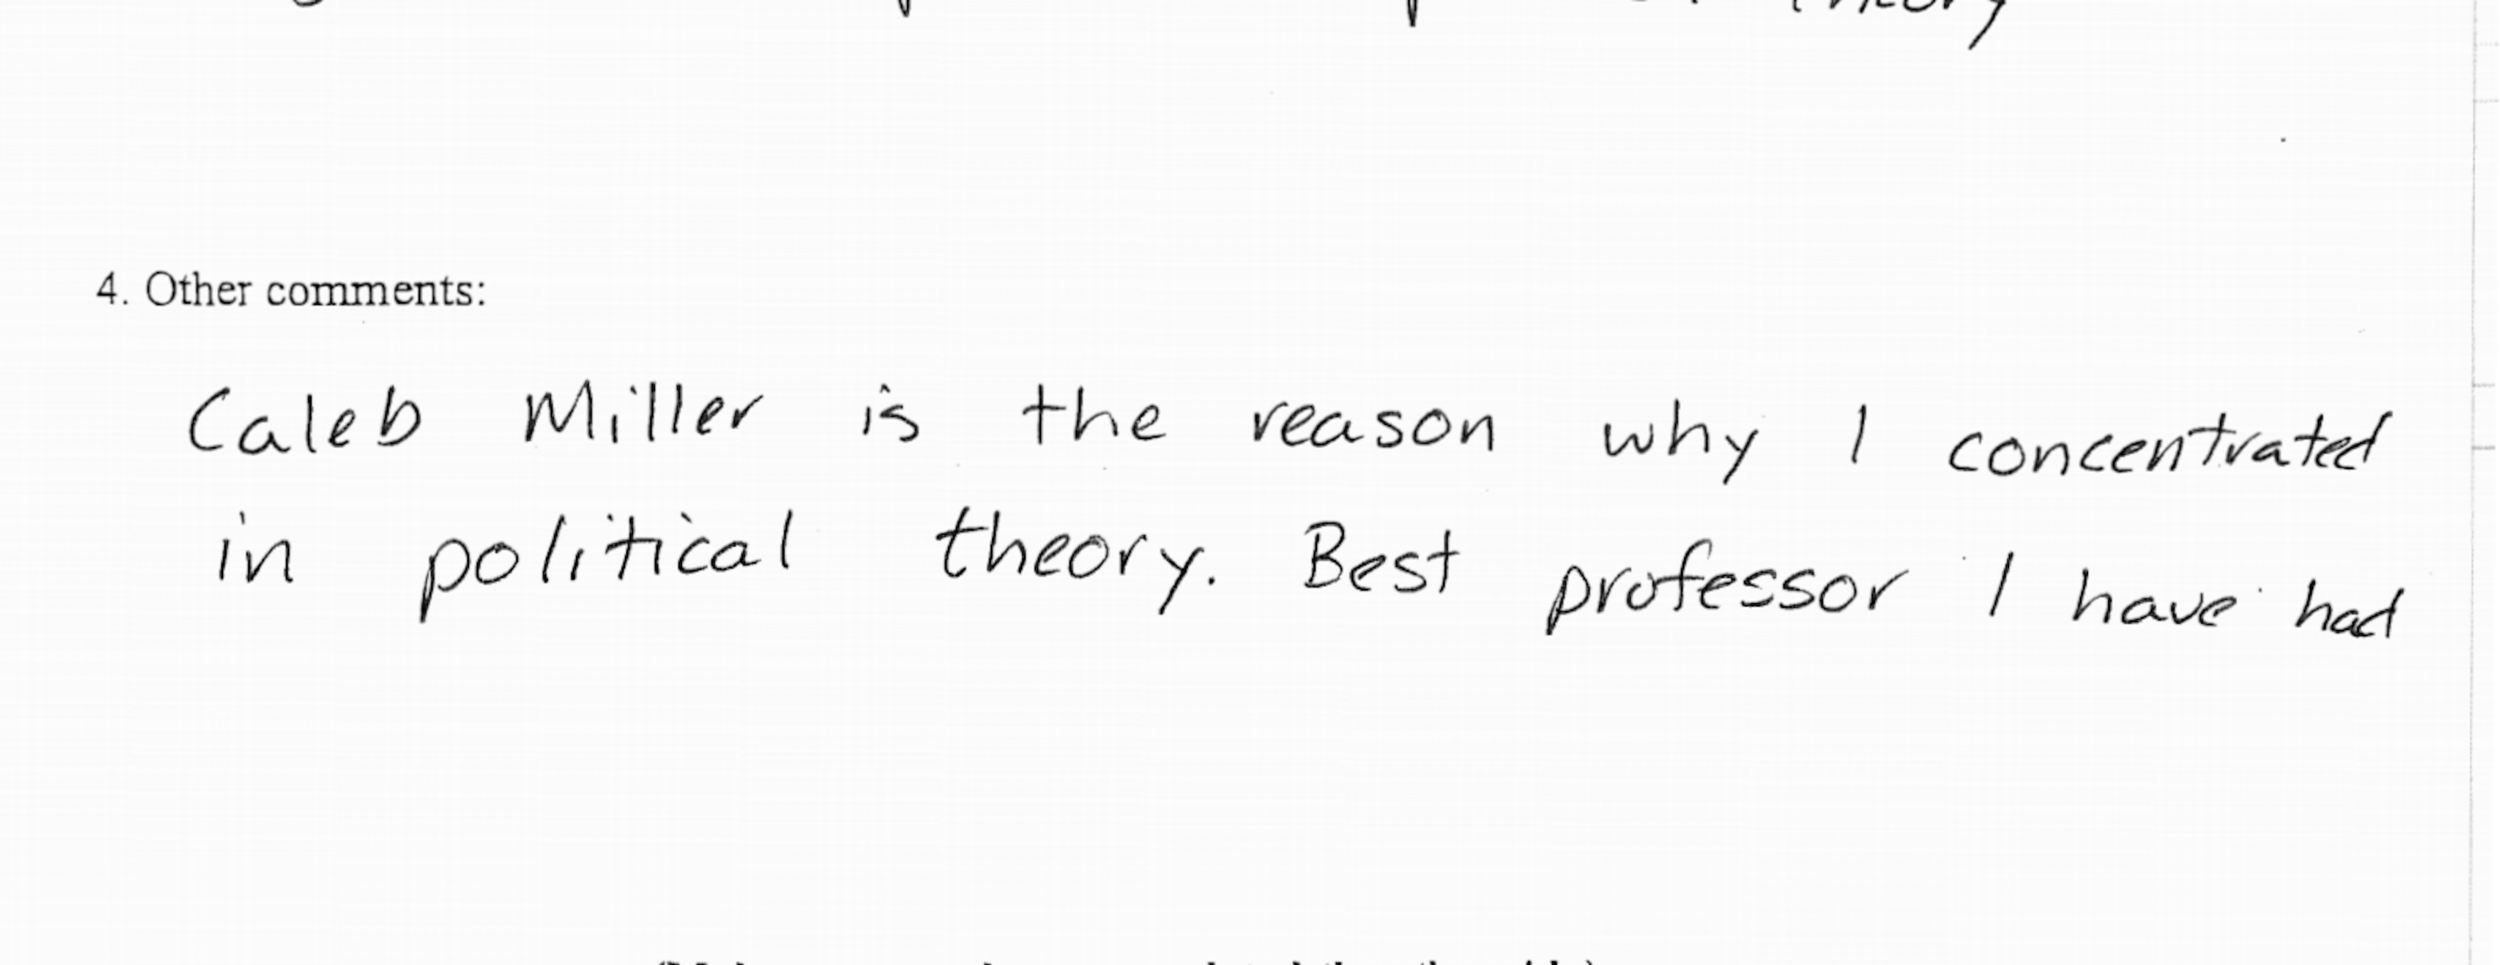 theory
4. Other comments:
Caleb Miller is the reason why I concentrated
in political theory. Best professor I have had